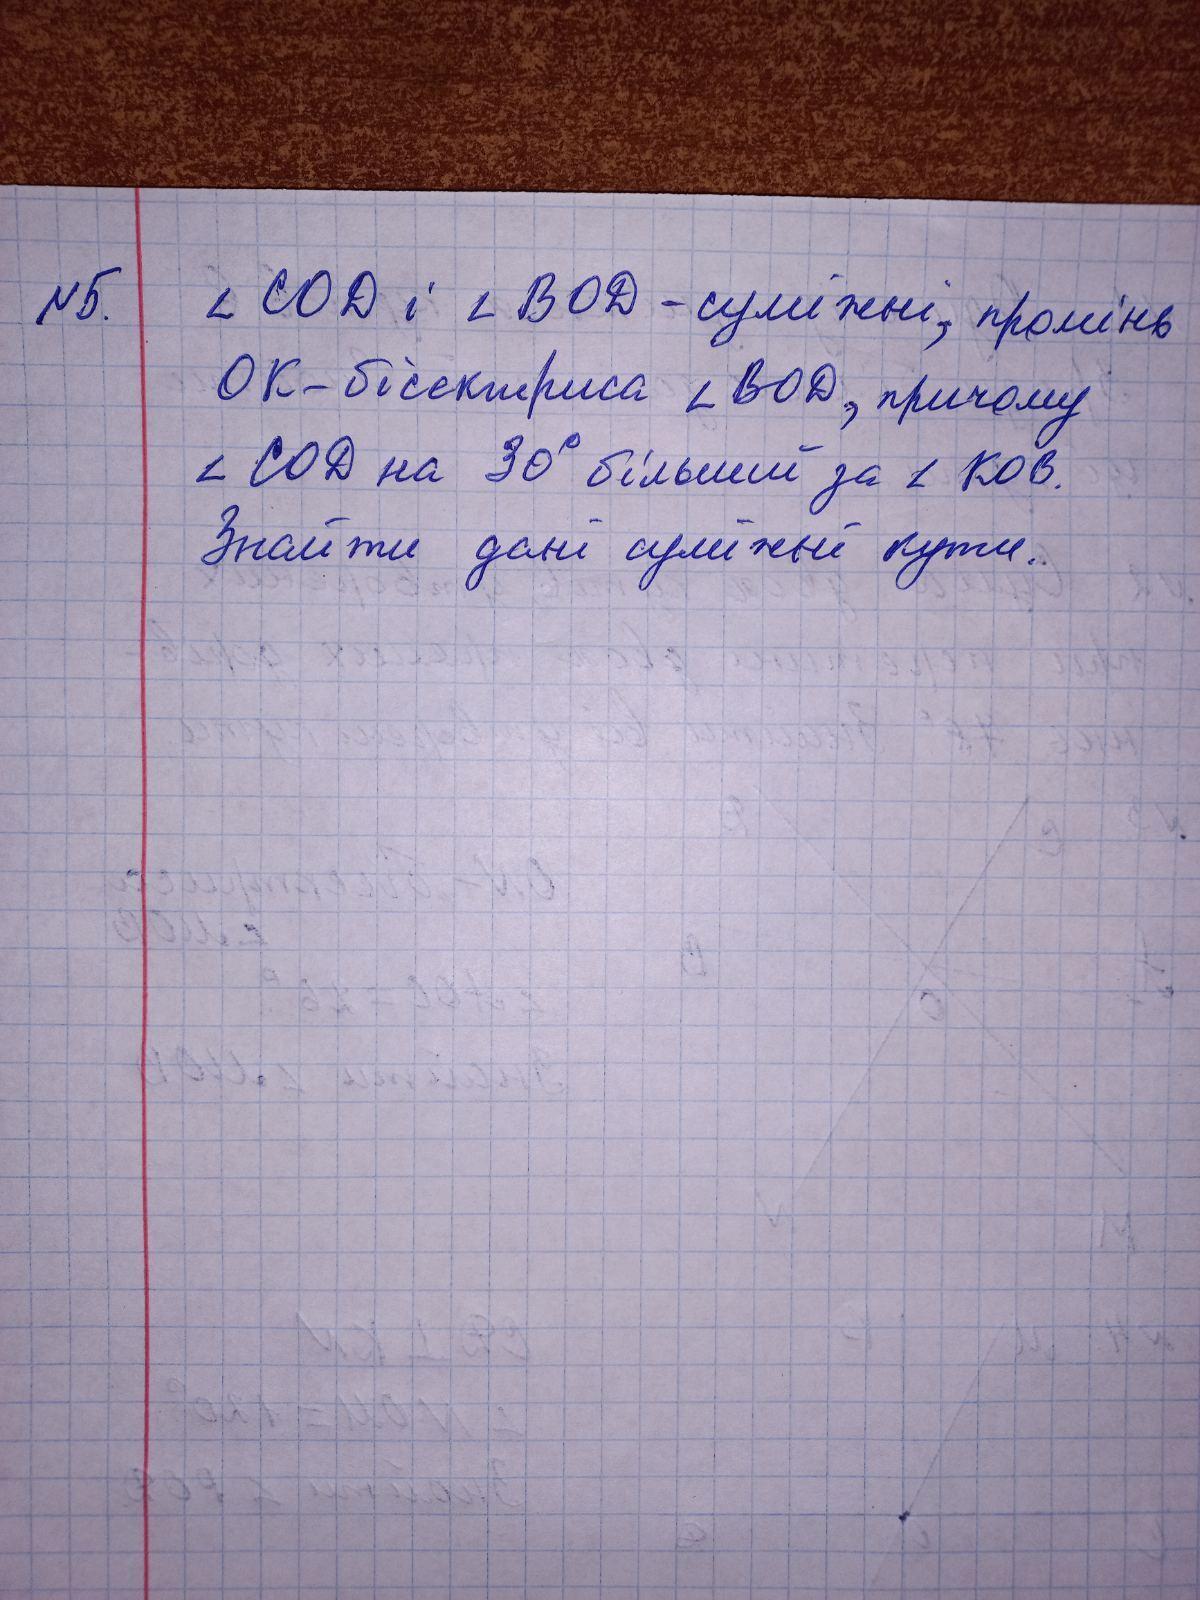 №5. ∠ COD і ∠ BOD - суміжні, промінь
OK - бісектриса ∠ BOD, причому
∠ COD на 30° більший за ∠ KOB.
Знайти дані суміжні кути.